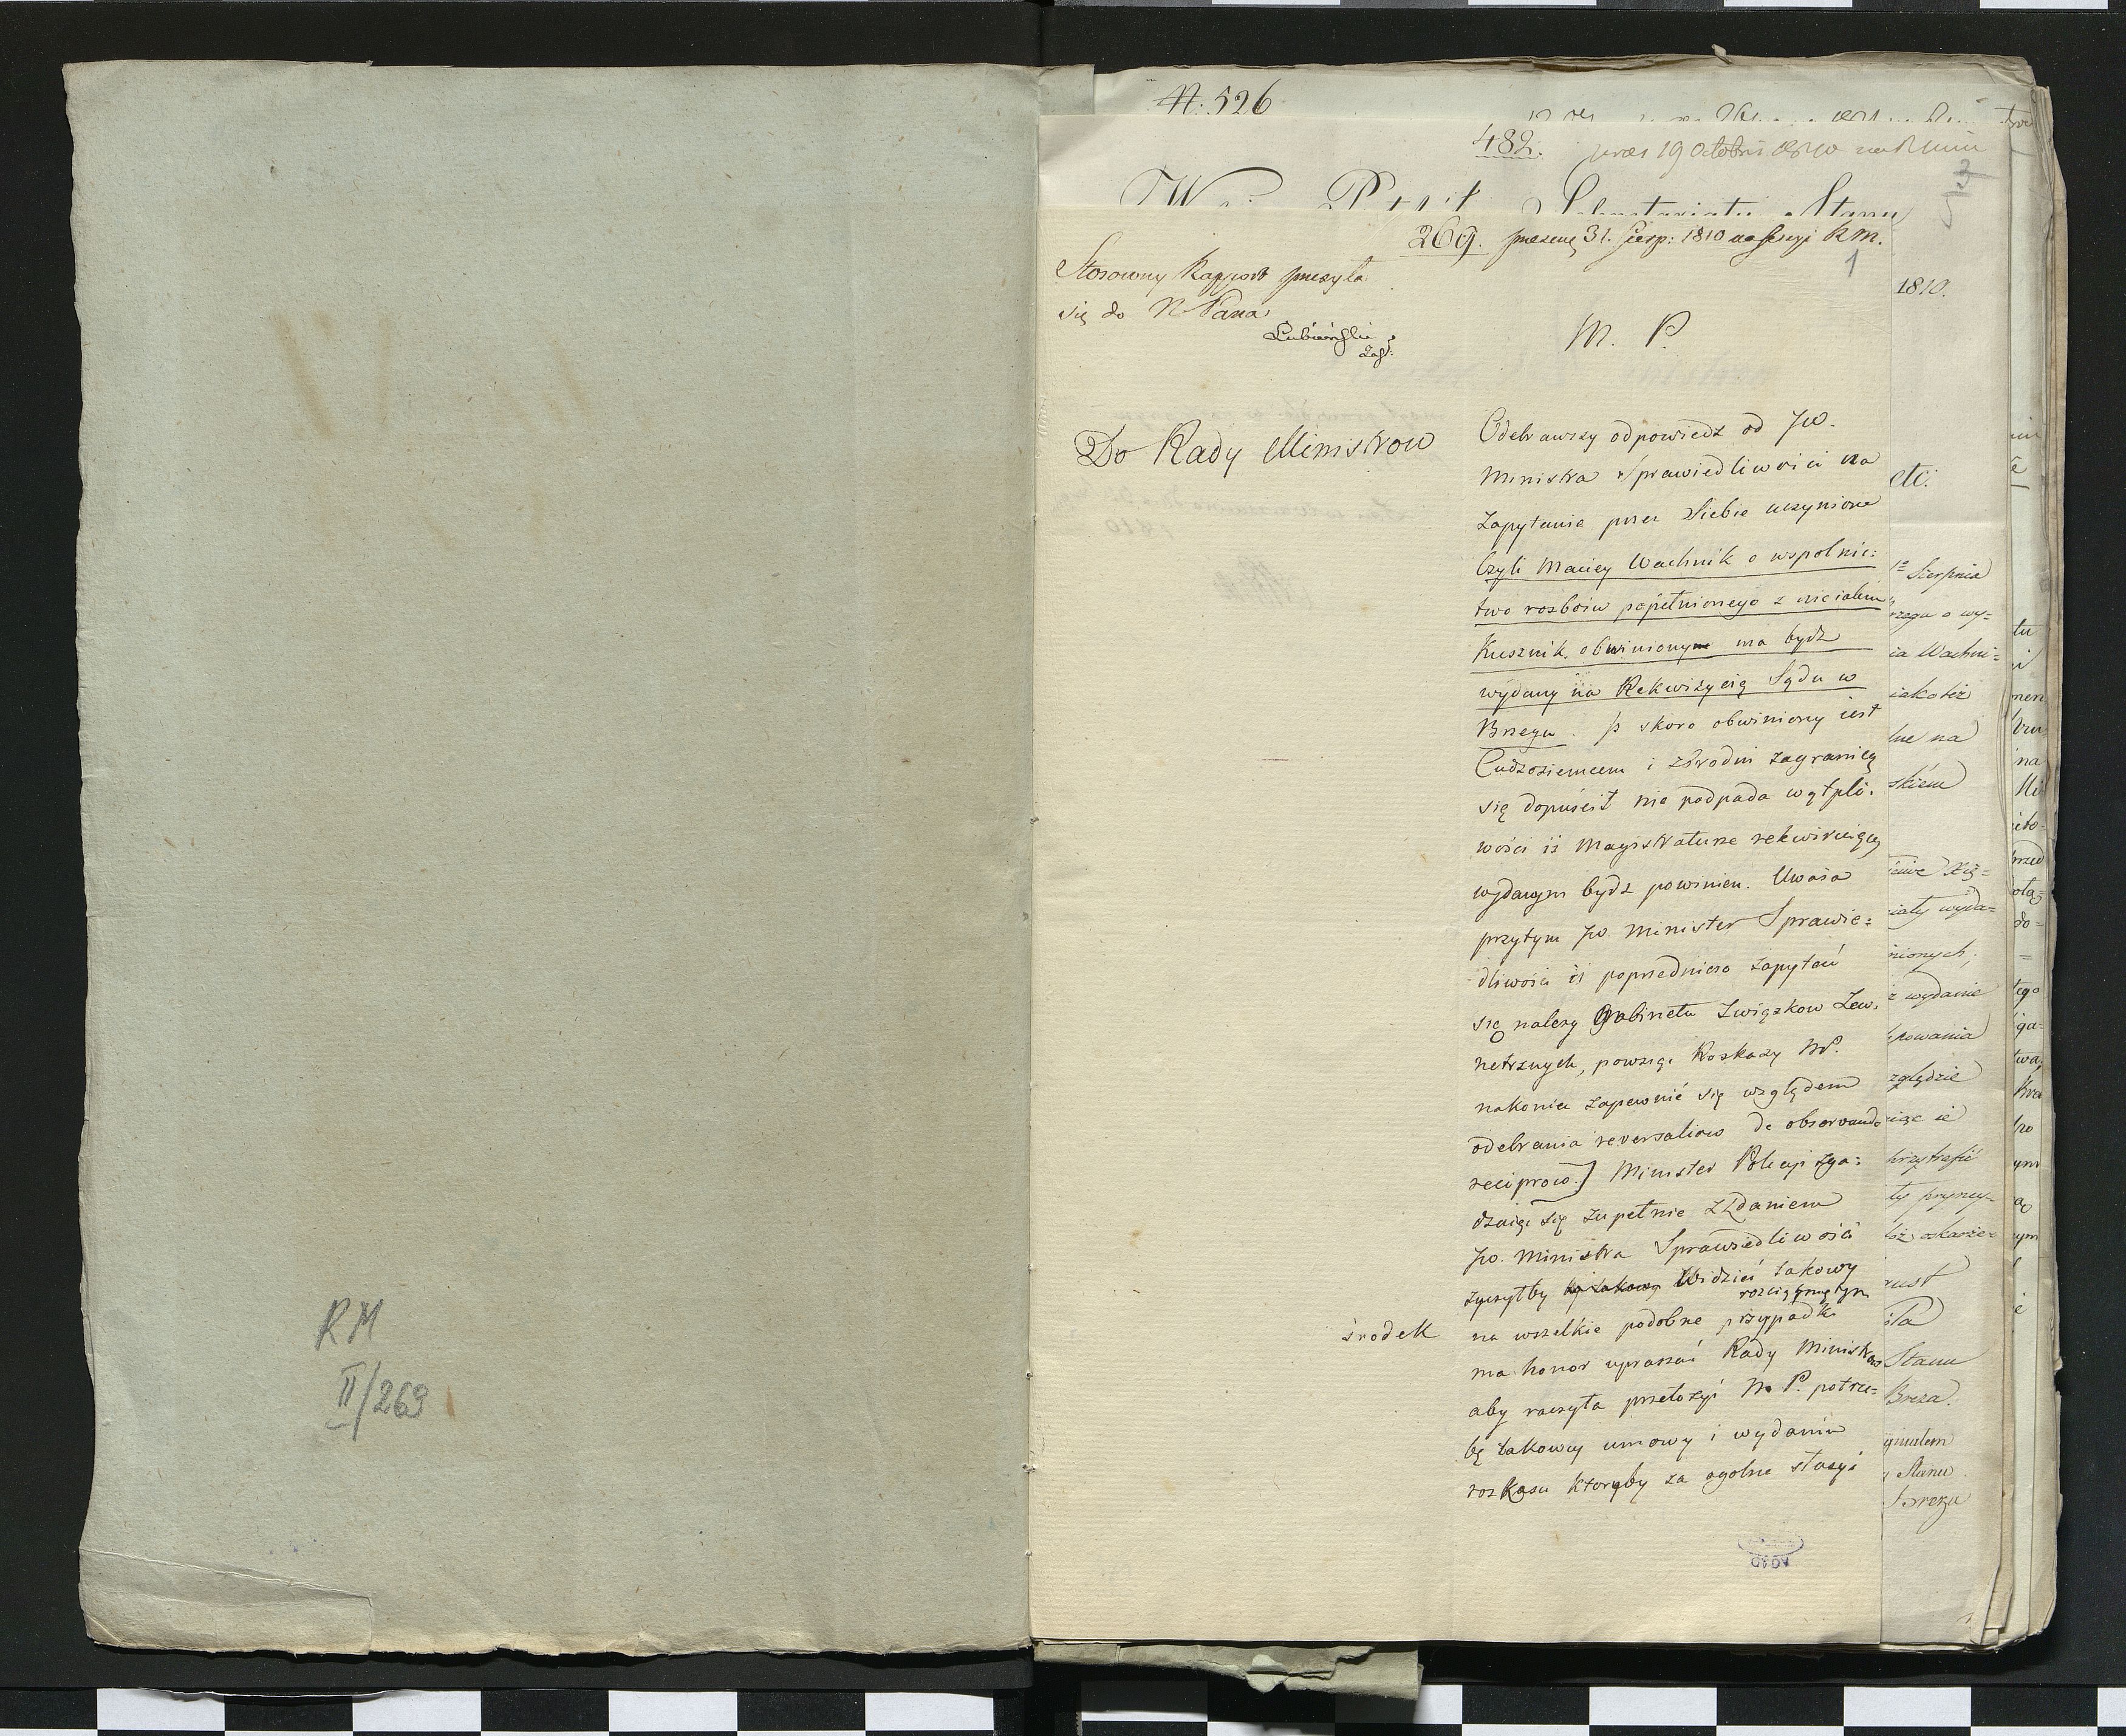 RM
II/269
N. 526
482. praes 19 Octobris 1810 na R Minis
W Sekretariatu Stanu
269. praesent 31. Sierp: 1810 na Sessyi RM.
1
Stosowny Rapport przesyła
się do N Pana
Łubieński
Zast:
M. P.
Do Rady Ministrow
Odebrawszy odpowiedz od JW.
Ministra Sprawiedliwości na
zapytanie przez Siebie uczynione
Czyli Maciey Wachnik o wspolnic:
two rozboiu popełnionego z nieiakim
Kusznik, obwinionym ma bydz
wydany na Rekwizycią Sądu w
Brzegu. iż skoro obwiniony iest
Cudzoziemcem i zbrodni zagranicą
się dopuścił nie podpada wątpli:
wości iż Magistraturze rekwiruiący
wydanym bydz powinien. Uważa
przytym JW. Minister Sprawie:
dliwości iż poprzedniczo zapytać
się należy Gabinetu Związkow Zew:
netrznych, powziąć Rozkazy NP.
nakoniec zapewnić się względem
odebrania reversaliow de observando
reciproco.] Minister Policyi zga:
dzaiąc się zupełnie z Zdaniem
JW. Ministra Sprawiedliwości
życzyłby Widzieć takowy
rozciągniętym
środek na wszelkie podobne przypadki
ma honor upraszać Rady Ministrow
aby raczyła przełożyć N. P. potrze:
bę takowey umowy i wydania
rozkazu ktoryby za ogolne służył
1810.
etc.
Sierpnia
rzegu o wy=
ia Wachni=
iakoteż
lne na
skiem
nionych;
z wydanie
powania
zględzie
Stanu
Breza.
gustem
Stanu
AGAD